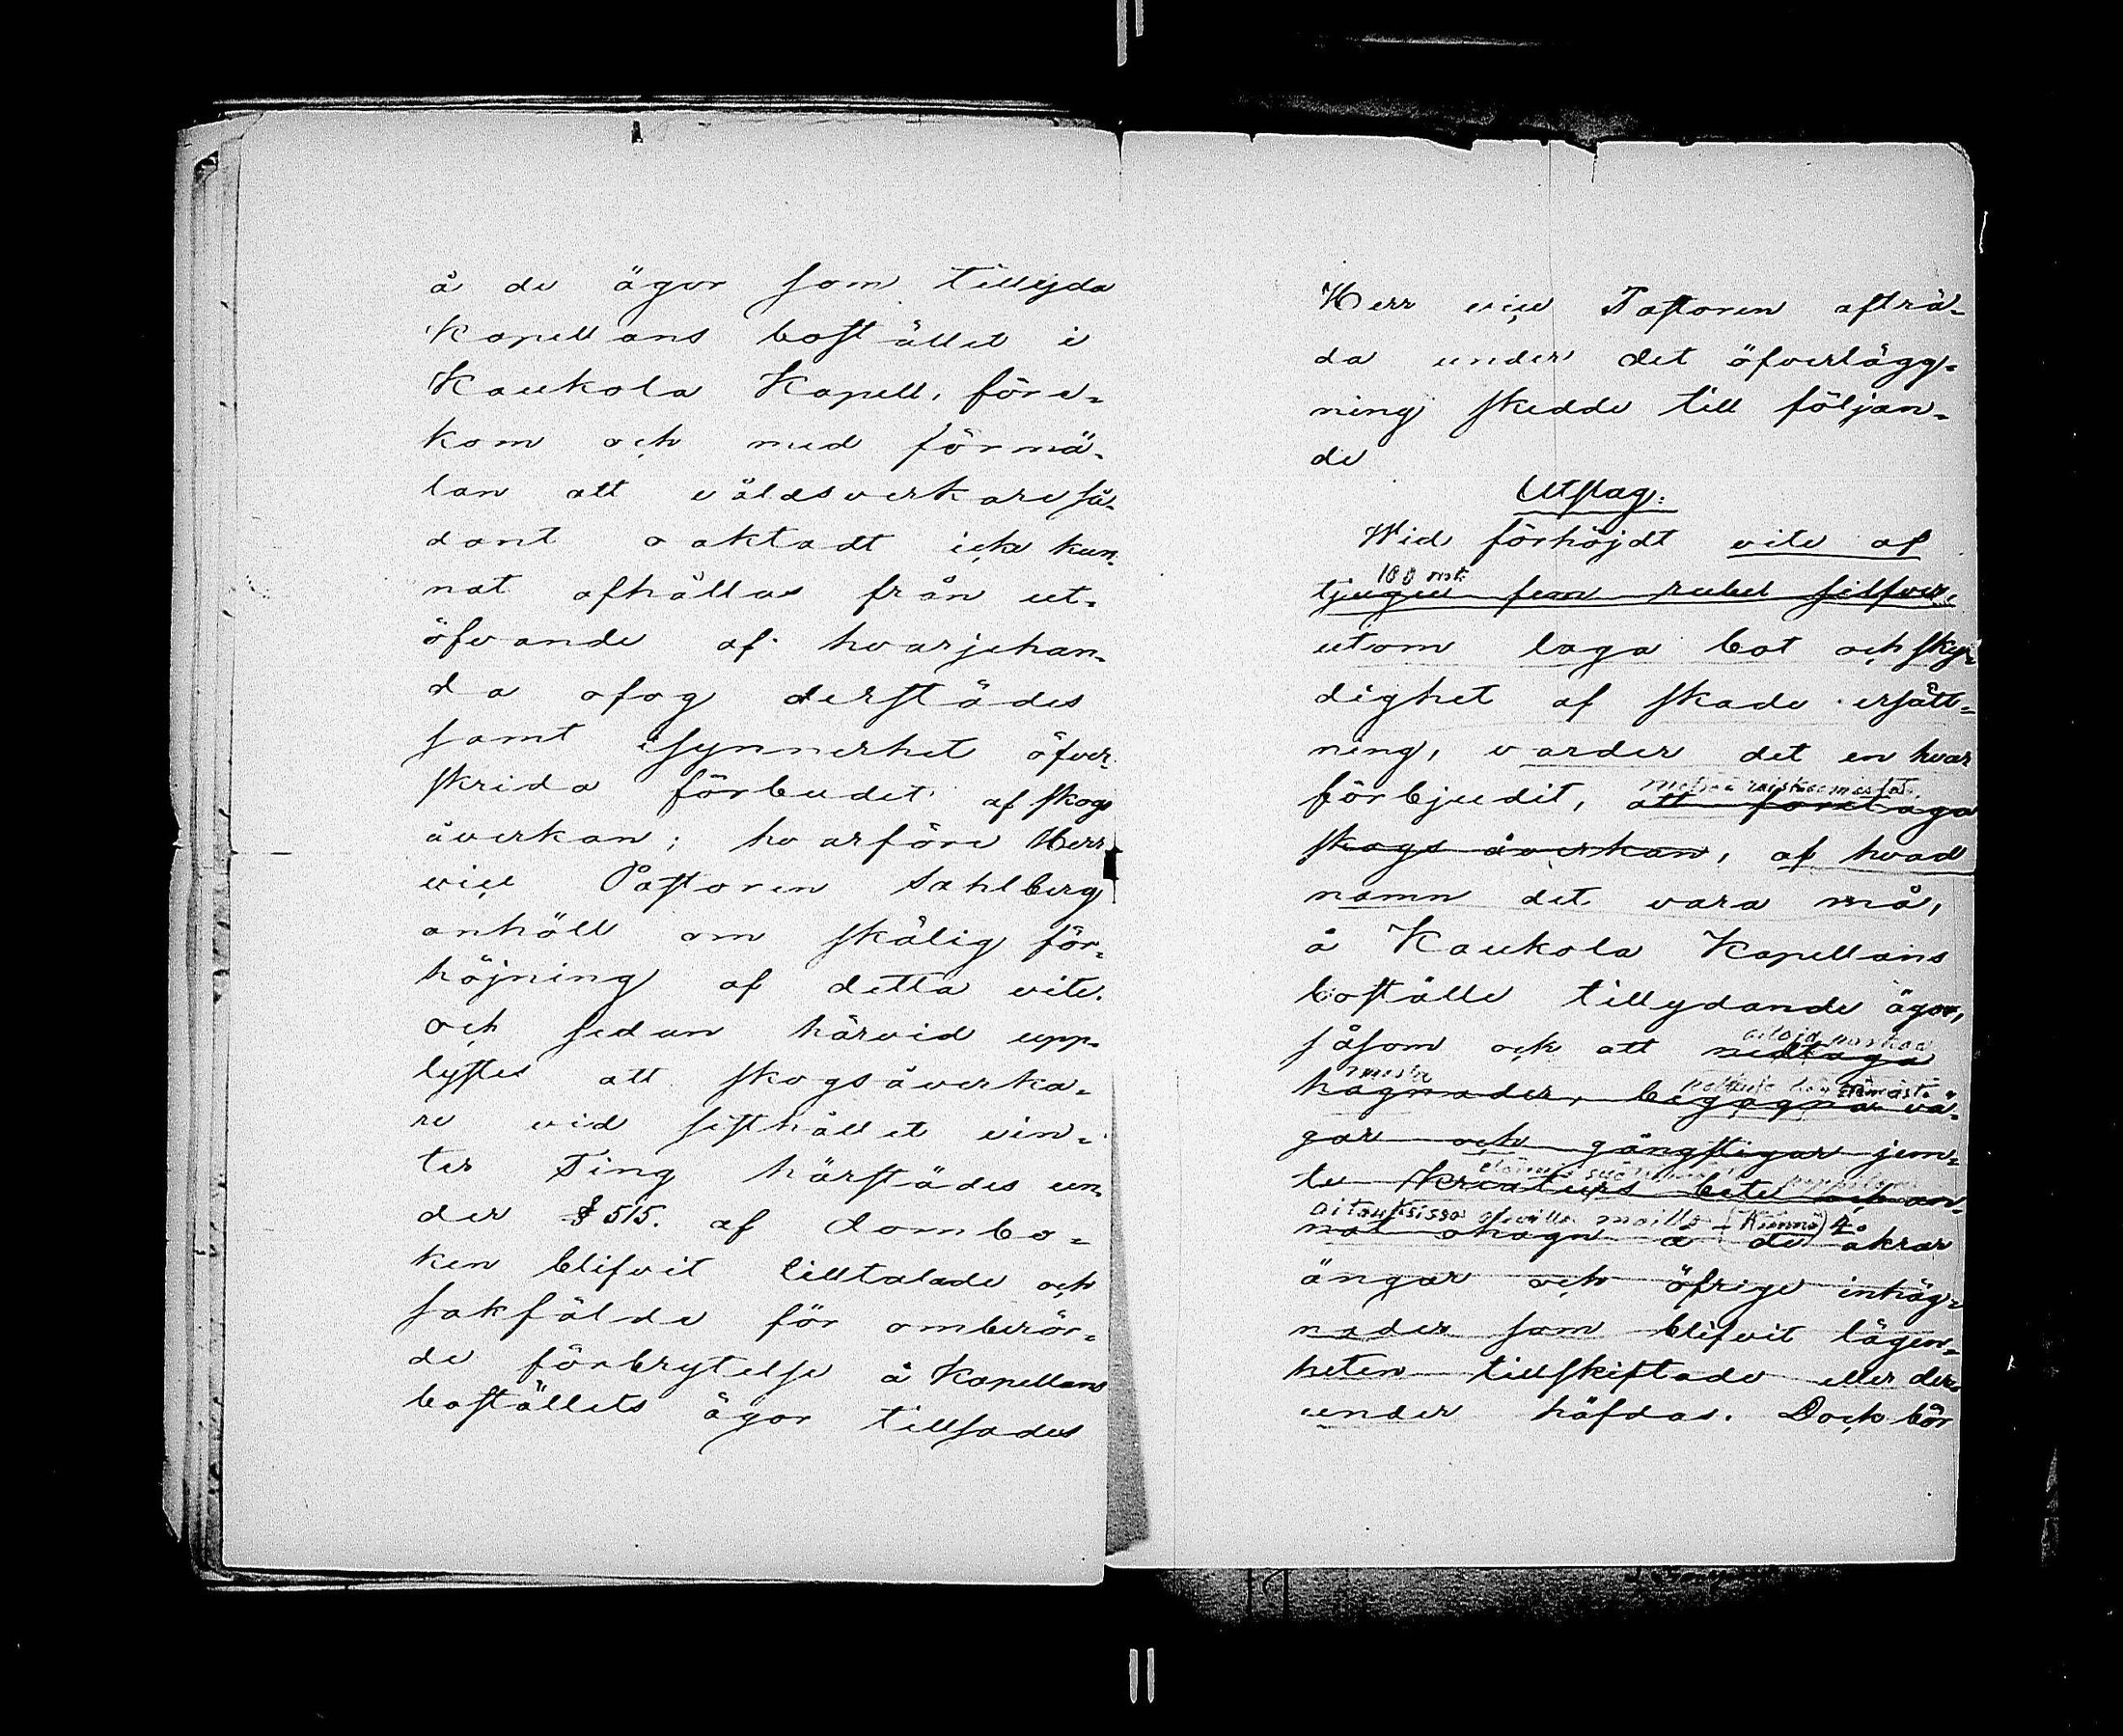 å de ägor som tillyda
Kapellans bostället i
Kaukola Kapell, före-
kom och med förmä-
lan att våldsverkare så-
dant oaktadt icke kun-
nat afhållas från ut-
öfvande af hvarjehan-
da ofog derstädes
samt isynnerhet öfver-
skrida förbudet af skogs
åverkan; hvarföre Herr
vice Pastoren Sahlberg
anhöll om skälig för-
höjning af detta vite.
och sedan härvid upp-
lystes att skogsåverka-
re vid sisthållet vin-
ter Ting härstädes un-
der § 515. af dombo-
ken blifvit tilltalade och
sakfälde för omberör-
de förbrytelse å Kapellans
boställets ägor tillsades
Herr vice Pastoren afträ-
da under det öfverlägg-
ning skedde till följan-
de
Utslag:
Wid förhöjdt vite af
100 mk
tjugu fem rubel silfver,
utom laga bot och skyl-
dighet af skade ersätt-
ning, varder det en hvar
förbjudit, att företaga
skogs åverkan, af hvad
namn det vara må,
å Kaukola Kapellans
boställe tillydande ägor,
såsom ock att nedtaga
mista
hägnader, begagna vä-
gar och gångstigar jem-
te kreaturs bete och an-
aitauksissa oleville mailla (Kunnó) 4.
nat ohägn å de åkrar
ängar och öfrige inhäg-
nader som blifvit lägen-
heten tillskiftade eller der-
under häfdas. Dock bör